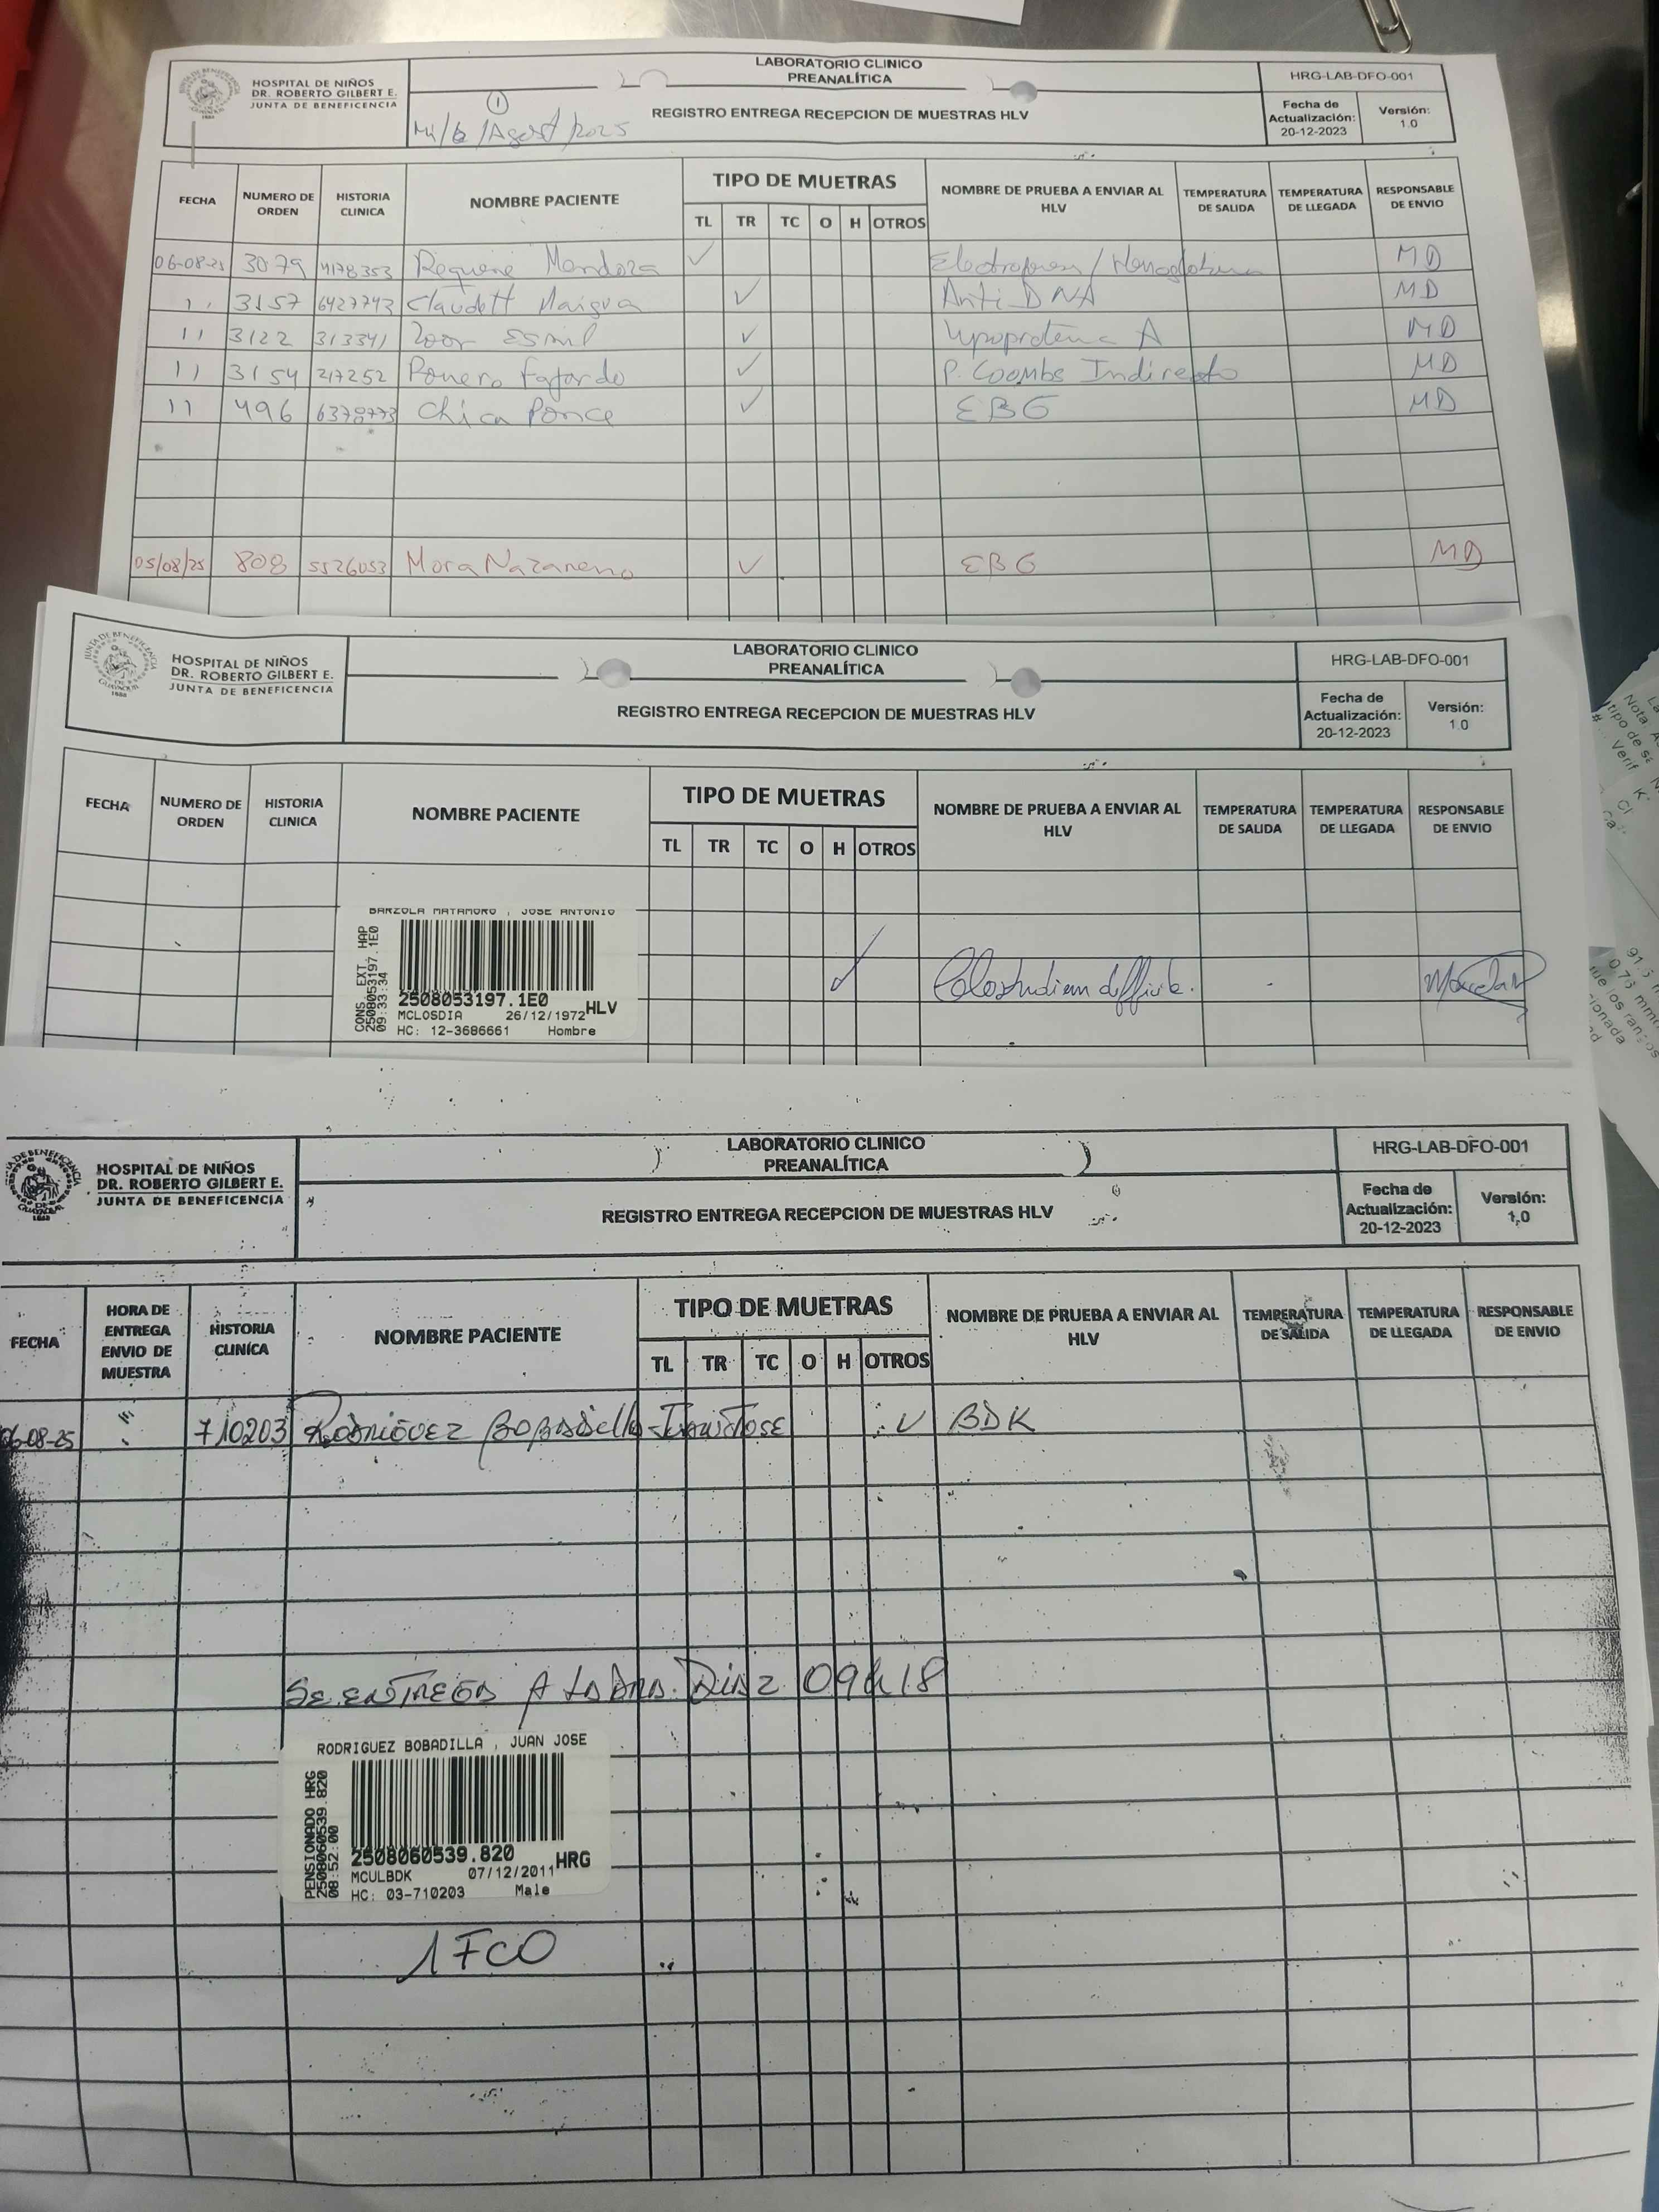 HOSPITAL DE NIÑOS
DR. ROBERTO GILBERT E.
JUNTA DE BENEFICENCIA
LABORATORIO CLINICO
PREANALÍTICA
1
REGISTRO ENTREGA RECEPCION DE MUESTRAS HLV
HRG-LAB-DFO-001
Fecha de Actualización: 20-12-2023
Versión: 1.0
FECHA NUMERO DE ORDEN HISTORIA CLINICA NOMBRE PACIENTE TIPO DE MUETRAS NOMBRE DE PRUEBA A ENVIAR AL HLV TEMPERATURA DE SALIDA TEMPERATURA DE LLEGADA RESPONSABLE DE ENVIO
TL TR TC O H OTROS
06-08-25 3079 4178353 Mendoza ✓ MD
11 3157 6427743 ✓ Anti DNA MD
11 3122 313341 ✓ A MD
11 3154 217252 Fajardo ✓ P. Coombs Indirecto MD
11 496 Chica Ponce ✓ EBG MD
05/08/25 808 5526053 Mora Nazareno ✓ EBG MD
JUNTA DE BENEFICENCIA DE GUAYAQUIL 1888
HOSPITAL DE NIÑOS
DR. ROBERTO GILBERT E.
JUNTA DE BENEFICENCIA
LABORATORIO CLINICO
PREANALÍTICA
REGISTRO ENTREGA RECEPCION DE MUESTRAS HLV
HRG-LAB-DFO-001
Fecha de Actualización: 20-12-2023
Versión: 1.0
FECHA NUMERO DE ORDEN HISTORIA CLINICA NOMBRE PACIENTE TIPO DE MUETRAS NOMBRE DE PRUEBA A ENVIAR AL HLV TEMPERATURA DE SALIDA TEMPERATURA DE LLEGADA RESPONSABLE DE ENVIO
TL TR TC O H OTROS
BARZOLA MATAMORO , JOSE ANTONIO
CONS. EXT. HAP
2508053197.1E0
09:33:34
2508053197.1E0 HLV
MCLOSDIA 26/12/1972
HC: 12-3686661 Hombre
HOSPITAL DE NIÑOS
DR. ROBERTO GILBERT E.
JUNTA DE BENEFICENCIA
LABORATORIO CLINICO
PREANALÍTICA
REGISTRO ENTREGA RECEPCION DE MUESTRAS HLV
HRG-LAB-DFO-001
Fecha de Actualización: 20-12-2023
Versión: 1,0
FECHA HORA DE ENTREGA ENVIO DE MUESTRA HISTORIA CLINICA NOMBRE PACIENTE TIPO DE MUETRAS NOMBRE DE PRUEBA A ENVIAR AL HLV TEMPERATURA DE SALIDA TEMPERATURA DE LLEGADA RESPONSABLE DE ENVIO
TL TR TC O H OTROS
06-08-25 710203 Rodriguez Bobadilla Juan Jose ✓ BDK
SE ENTREGA A LA DRA. DIAZ 09h18
RODRIGUEZ BOBADILLA , JUAN JOSE
PENSIONADO HRG
2508060539.820
08:52:00
2508060539.820 HRG
MCULBDK 07/12/2011
HC: 03-710203 Male
1 FCO